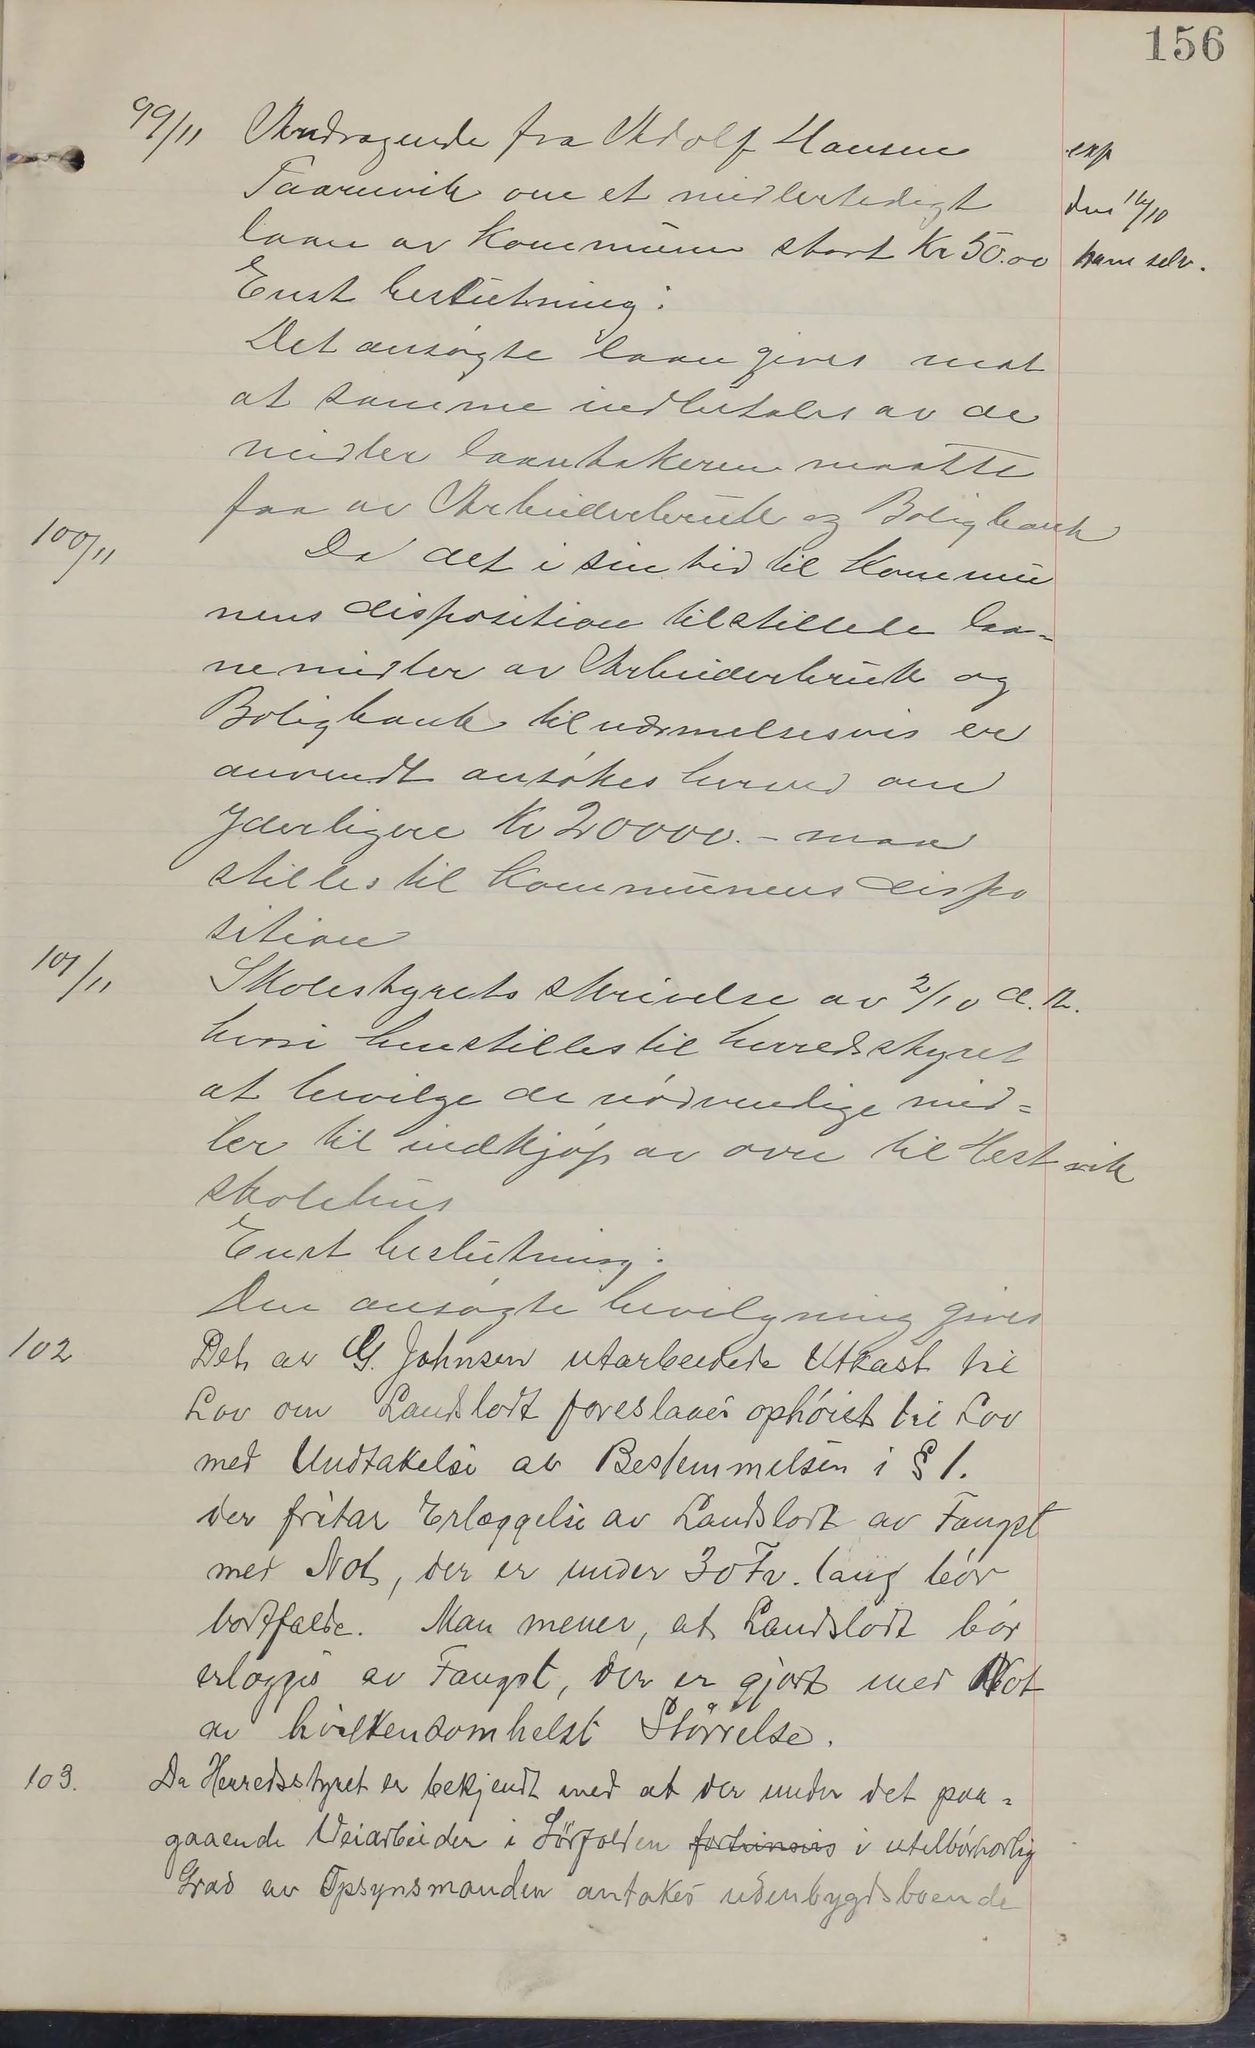 156
99/11 Andragende fra Adolf Hansen
Faarnvik om et midlertidigt
laan av kommunen stort Kr 50.00
exp
den 14/10
ham selv.
Enst beslutning:
Det ansøgte laan gives mot
at samme indbetales av de
midler laantakeren maatte
faa av Arbeiderbruk og Boligbank
100/11 Da det i sin tid til Kommu
nens disposition tilstillede laa-
nemidler av Arbeiderbruk og
Boligbank tilnærmelsesvis er
anvendt ansøkes herved om
yderligere Kr 20000.- maa
stilles til kommunens dispo
sition
101/11 Skolestyrets skrivelse av 2/10 d.A.
hvori henstilles til herredsstyret
at bevilge de nødvendige mid=
ler til indkjøp av ovn til Hestvik
skolehus
Enst beslutning:
Den ansøgte bevilgning gives
102 Det av G. Johnsen utarbeidede Utkast til
Lov om Landslodt foreslaaes ophøiet til Lov
med Undtakelse av Bestemmelsen i § 1.
der fritar Erlæggelse av Landslodt av Fangst
med Not, der er under 30 Fv. lang bør
bortfalde. Man mener, at Landslodt bør
erlægges av Fangst, der er gjort med Not
av hvilkensomhelst Størrelse.
103. Da Herredsstyret er bekjendt med at der under det paa=
gaaende Veiarbeider i Sørfolden i utilbørlig
Grad av Opsynsmanden antakes udenbygdsboende